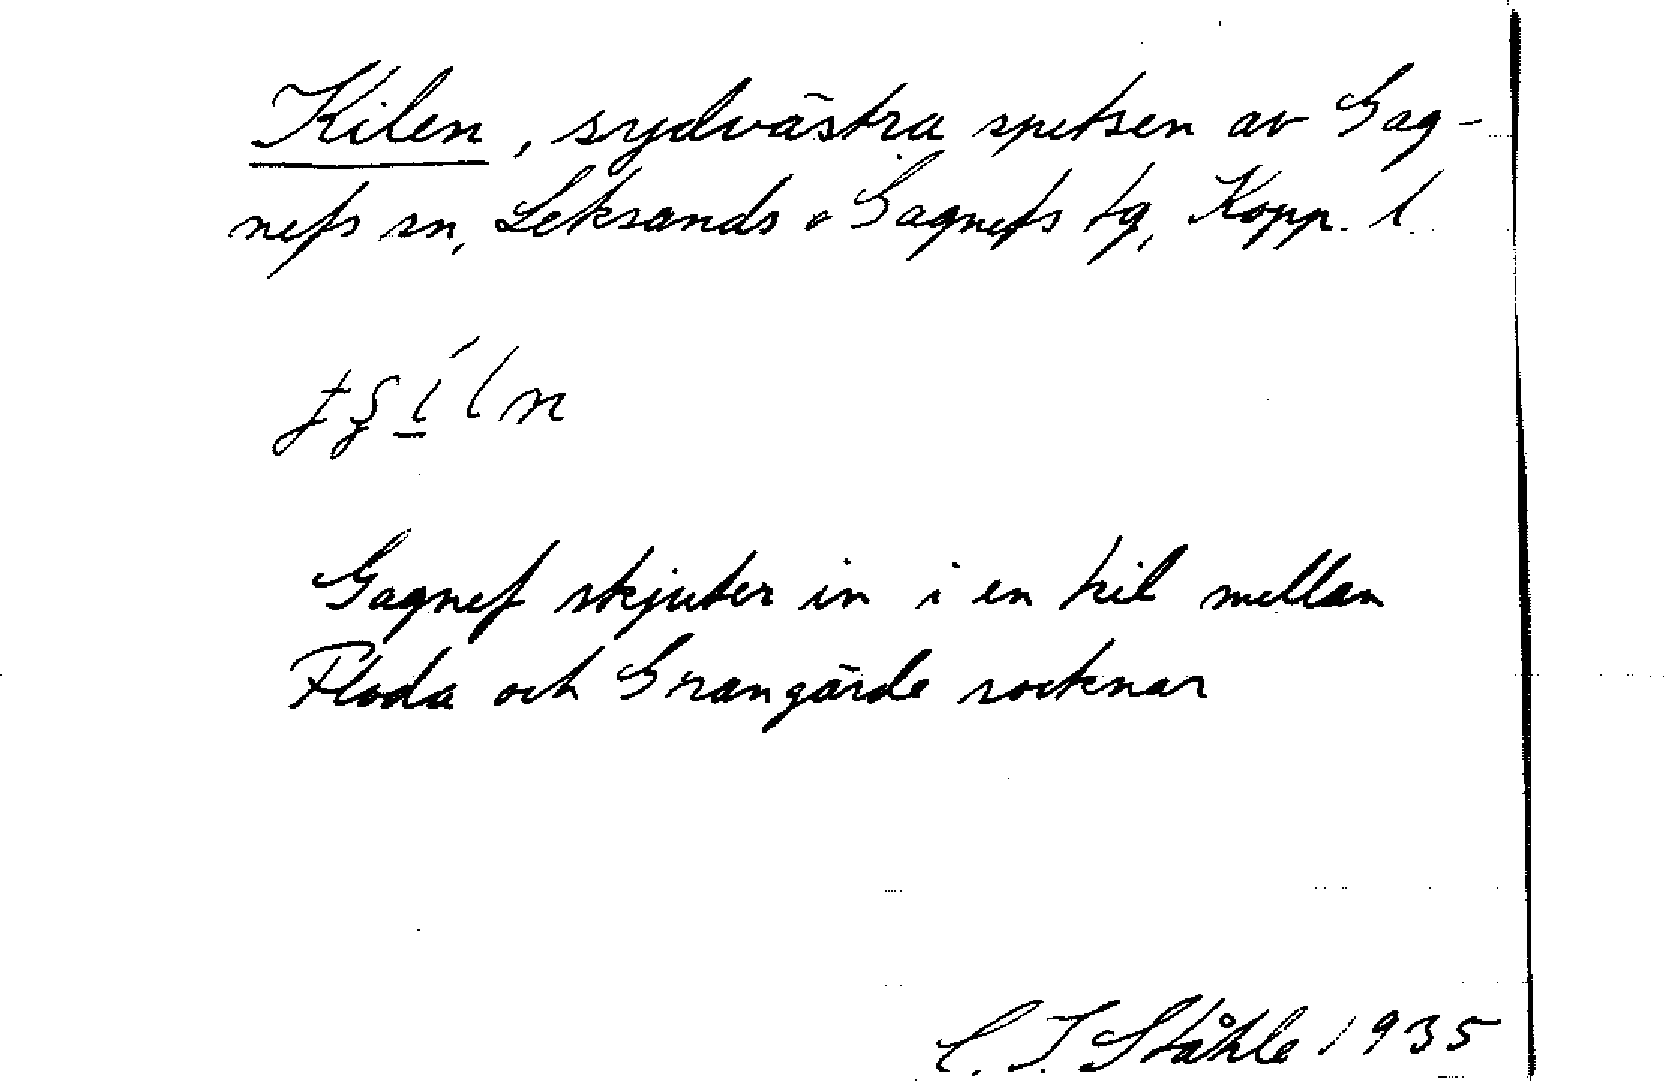 Kilen, sydvästra spetsen av Gag-
nefs sn, Leksands o Gagnefs tg, Kopp. l
Gagnef skjuter in i en kil mellan
Floda och Grangärde socknar
C. I. Ståhle 1935